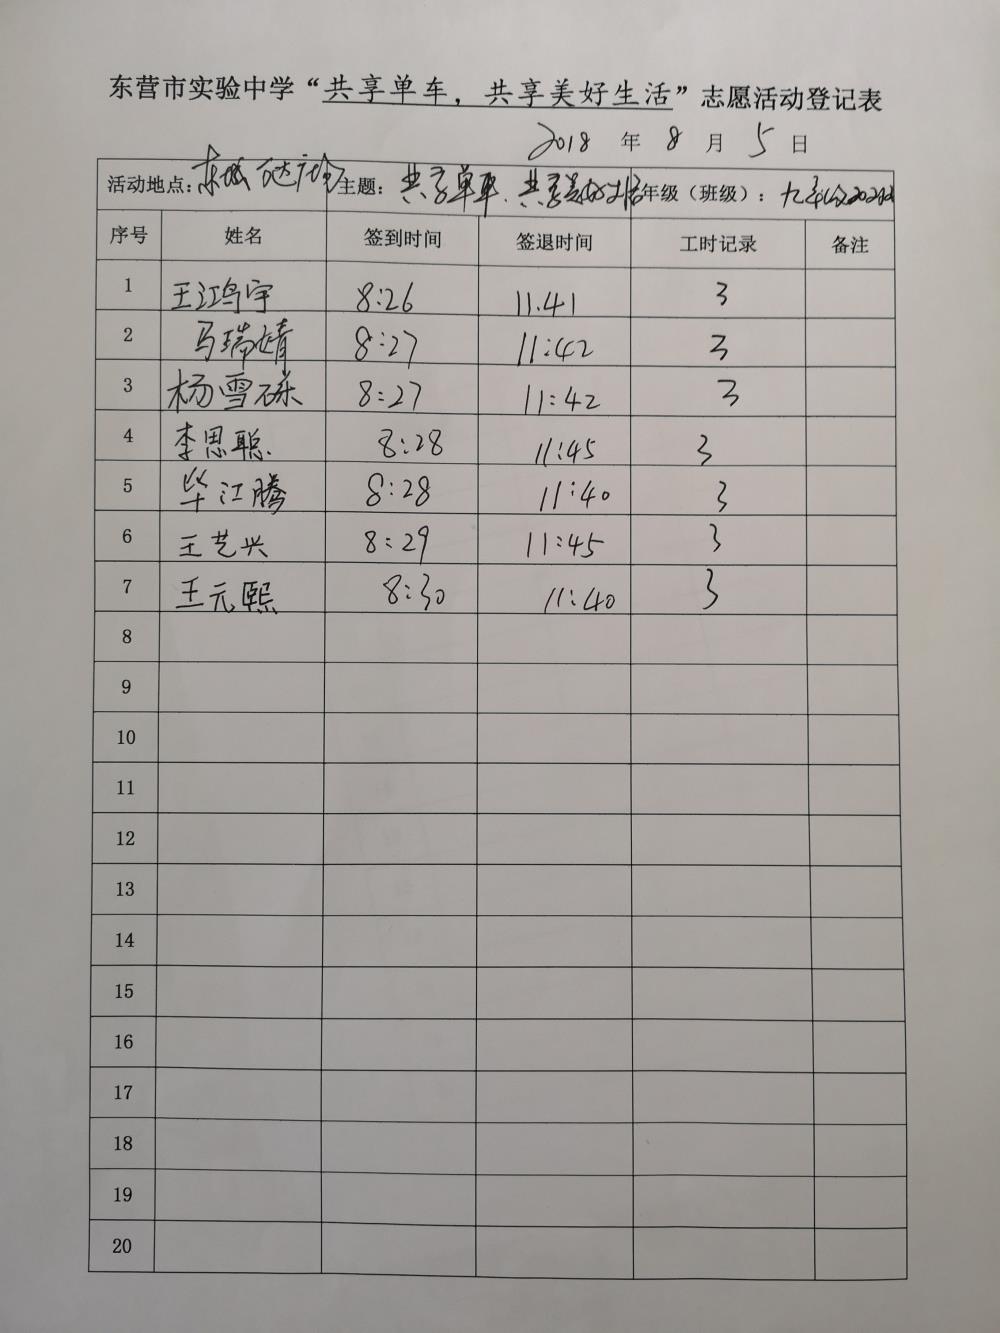 东营市实验中学“共享单车，共享美好生活”志愿活动登记表
2018 年 8 月 5 日
活动地点：东城万达广场 主题：共享单车、共享美好生活 年级（班级）：九年级
序号 姓名 签到时间 签退时间 工时记录 备注
1 王江鸿宇 8:26 11.41 3
2 马瑞婧 8:27 11:42 3
3 杨雪砾 8:27 11:42 3
4 李思聪 8:28 11:45 3
5 毕江腾 8:28 11:40 3
6 王艺兴 8:29 11:45 3
7 王元熙 8:30 11:40 3
8
9
10
11
12
13
14
15
16
17
18
19
20